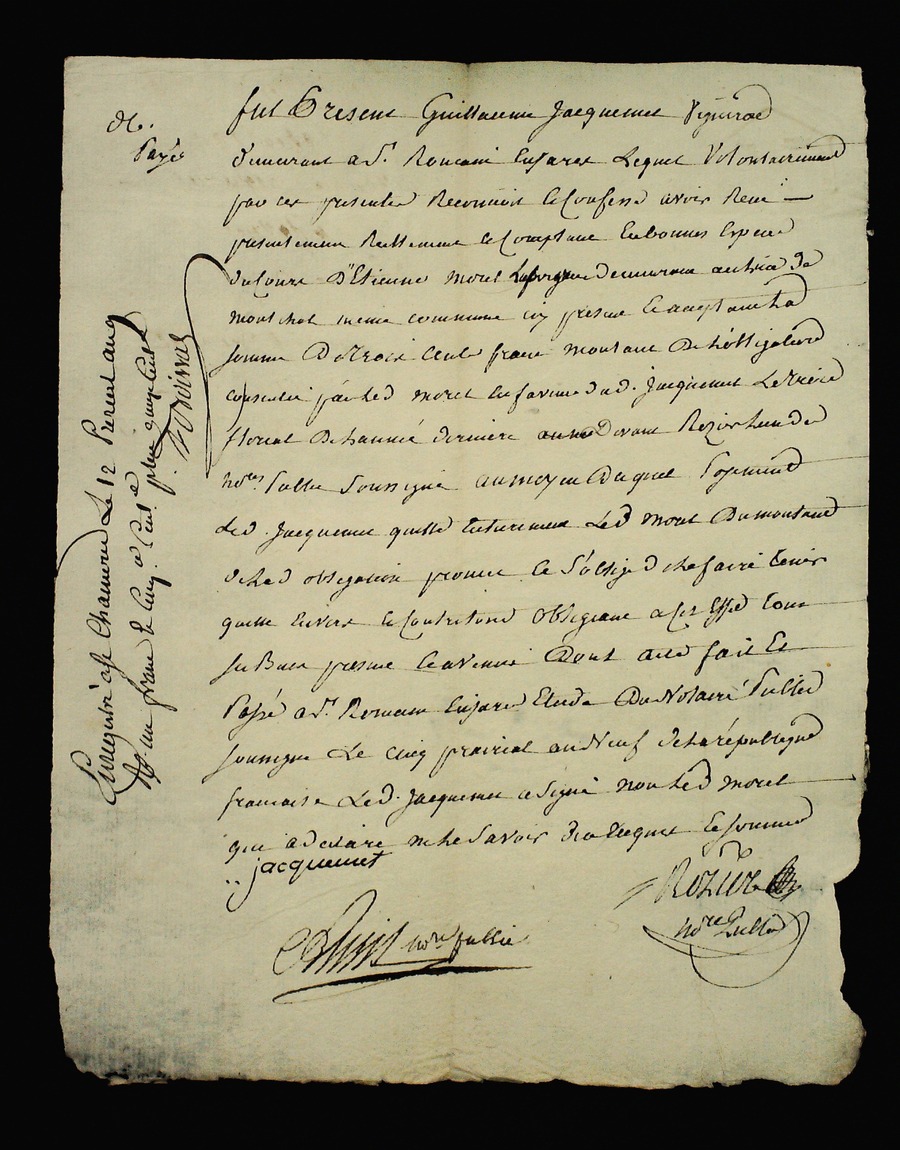 d6.
payés
fut Present Guillaume Jacquemet Vigneron
demeurant a St. Romain Lequel Volontairement
par ces presentes Reconnoit et Confesse avoir Recu
presentement Reellement et Comptant en bonnes Especes
du Cours D'Etienne moret demeurant
montchat meme commune icy present et acceptant La
somme De trois Cents francs montant De L'obligation
consentie par Led moret en faveur dud. Jacquemet Le treize
floreal De L'année derniere devant Rozier L'un des
nores. Public Soussigné au moyen Duquel Payement
Led. Jacquemet quitte Entierement Led moret Du montant
de Lad obligation promet et S'oblige de Le faire tenir
quitte Envers et Contre tous Obligeant a Cet Effet tous
ses Biens presents et avenirs Dont acte fait Et
Passé a St. Romain Etude Du Notaire Public
soussigné Le cinq prairial an Neuf de La république
francaise Led. Jacquemet a Signé non Led moret
qui a declaré ne Le Savoir de ce Enquis et sommé
jacquemet
Rozier
nore Public
nore public
Enregistré a St Chaumond Le 12 Prerial an 9
un franc cinq. Cent.